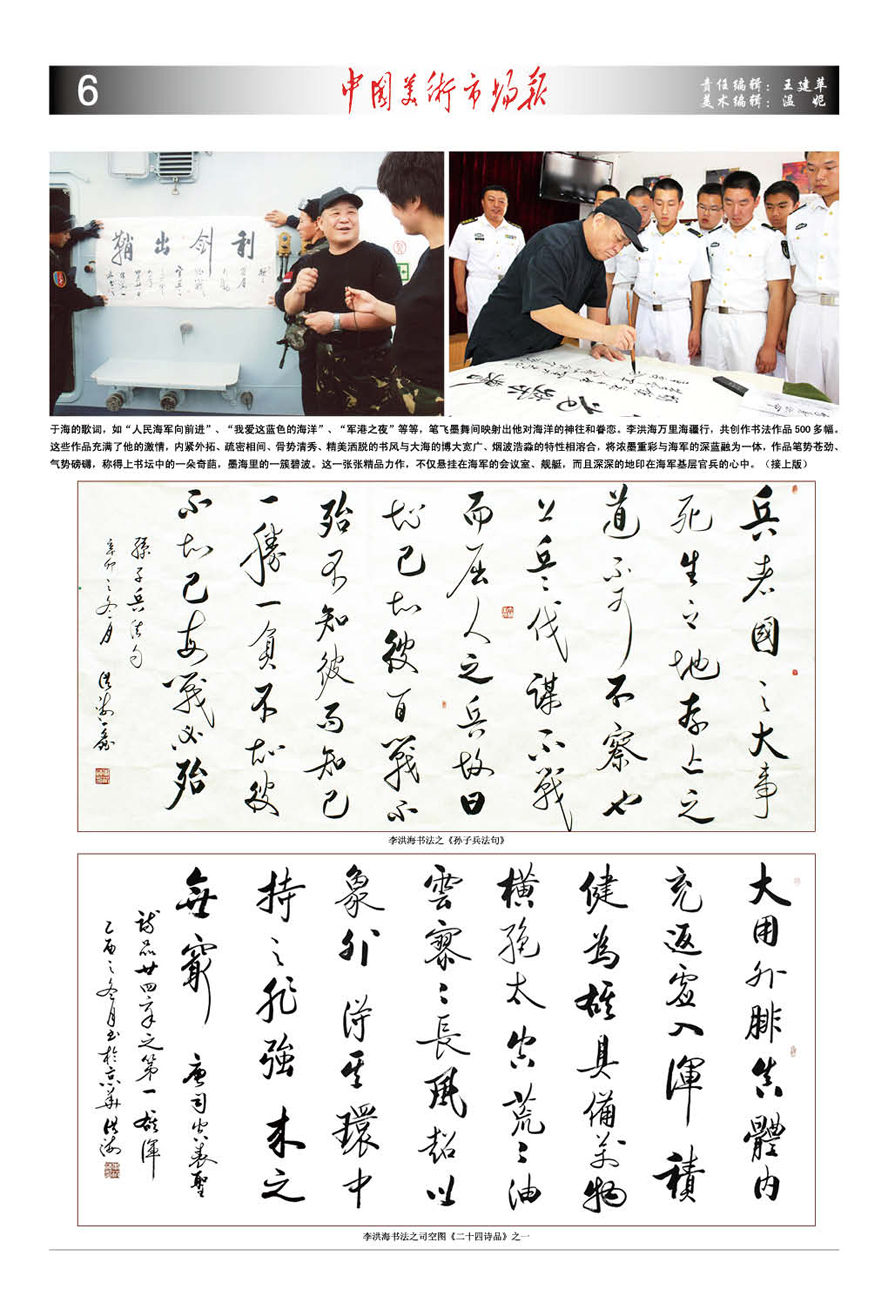 6
中国美術市场报
责任编辑：王建革
美术编辑：温 妮
利剑出鞘
于海的歌词，如“人民海军向前进”、“我爱这蓝色的海洋”、“军港之夜”等等，笔飞墨舞间映射出他对海洋的神往和眷恋。李洪海万里海疆行，共创作书法作品 500 多幅。
这些作品充满了他的激情，内紧外拓、疏密相间、骨势清秀、精美洒脱的书风与大海的博大宽广、烟波浩淼的特性相溶合，将浓墨重彩与海军的深蓝融为一体，作品笔势苍劲、
气势磅礴，称得上书坛中的一朵奇葩，墨海里的一簇碧波。这一张张精品力作，不仅悬挂在海军的会议室、舰艇，而且深深的地印在海军基层官兵的心中。（接上版）
兵者國之大事
死生之地存亡之
道不可不察也
上兵伐謀不戰
而屈人之兵故曰
知己知彼百戰不
殆不知彼而知己
一勝一負不知彼
不知己每戰必殆
孫子兵法句
辛卯之冬月 洪海
李洪海书法之《孙子兵法句》
大用外腓真體内
充返虚入渾積
健為雄具備萬物
横絶太空荒々油
雲寥々長風超以
象外得其環中
持之非強来之
無窮 唐司空表聖
詩品廿四章之第一雄渾
乙酉之冬月书於京華洪海
李洪海书法之司空图《二十四诗品》之一